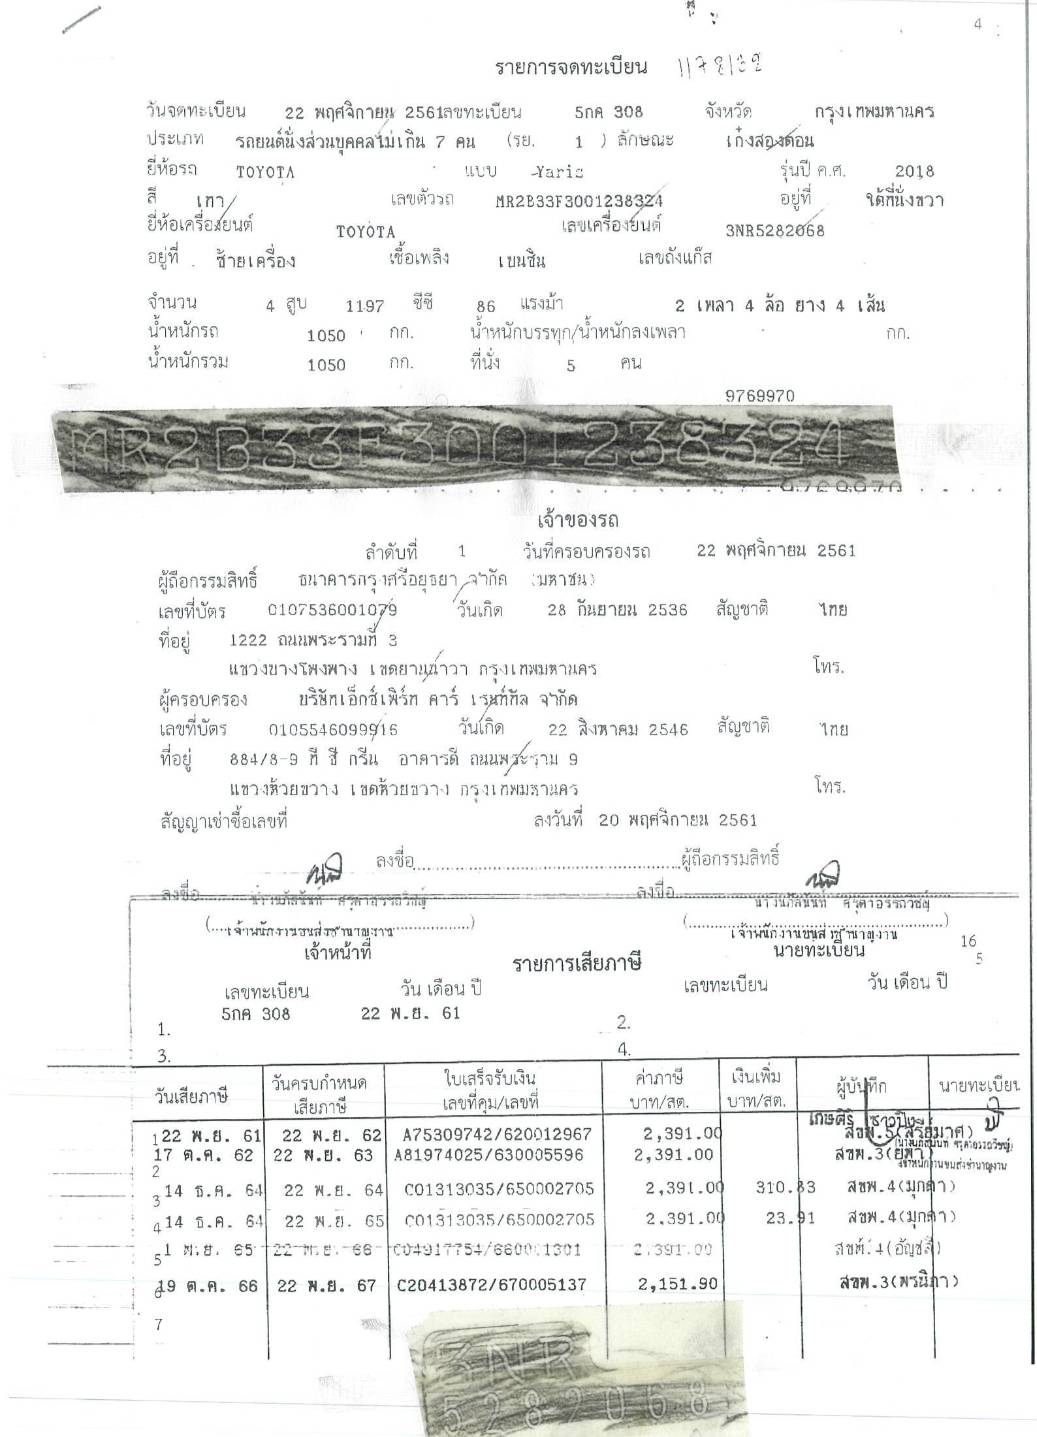 4
รายการจดทะเบียน
วันจดทะเบียน 22 พฤศจิกายน 2561 เลขทะเบียน 5กค 308 จังหวัด กรุงเทพมหานคร
ประเภท รถยนต์นั่งส่วนบุคคลไม่เกิน 7 คน (รย. 1 ) ลักษณะ เก๋งสองตอน
ยี่ห้อรถ TOYOTA แบบ Yaris รุ่นปี ค.ศ. 2018
สี เทา เลขตัวรถ MR2B33F3001238324 อยู่ที่ ใต้ที่นั่งขวา
ยี่ห้อเครื่องยนต์ TOYOTA เลขเครื่องยนต์ 3NR5282068
อยู่ที่ ซ้ายเครื่อง เชื้อเพลิง เบนซิน เลขถังแก๊ส
จำนวน 4 สูบ 1197 ซีซี 86 แรงม้า 2 เพลา 4 ล้อ ยาง 4 เส้น
น้ำหนักรถ 1050 กก. น้ำหนักบรรทุก/น้ำหนักลงเพลา กก.
น้ำหนักรวม 1050 กก. ที่นั่ง 5 คน
9769970
MR2B33F3001238324
เจ้าของรถ
ลำดับที่ 1 วันที่ครอบครองรถ 22 พฤศจิกายน 2561
ผู้ถือกรรมสิทธิ์ ธนาคารกรุงศรีอยุธยา จำกัด (มหาชน)
เลขที่บัตร 0107536001079 วันเกิด 28 กันยายน 2536 สัญชาติ ไทย
ที่อยู่ 1222 ถนนพระรามที่ 3
แขวงบางโพงพาง เขตยานนาวา กรุงเทพมหานคร โทร.
ผู้ครอบครอง บริษัทเอ็กซ์เพิร์ท คาร์ เรนท์ทัล จำกัด
เลขที่บัตร 0105546099916 วันเกิด 22 สิงหาคม 2546 สัญชาติ ไทย
ที่อยู่ 884/8-9 ที ซี กรีน อาคารดี ถนนพระราม 9
แขวงห้วยขวาง เขตห้วยขวาง กรุงเทพมหานคร โทร.
สัญญาเช่าซื้อเลขที่ ลงวันที่ 20 พฤศจิกายน 2561
ลงชื่อ ผู้ถือกรรมสิทธิ์
ลงชื่อ ลงชื่อ
(เจ้าพนักงานขนส่งชำนาญงาน) (เจ้าพนักงานขนส่งชำนาญงาน)
เจ้าหน้าที่ นายทะเบียน 16
รายการเสียภาษี 5
เลขทะเบียน วัน เดือน ปี เลขทะเบียน วัน เดือน ปี
5กค 308 22 พ.ย. 61
1. 2.
3. 4.
วันเสียภาษี วันครบกำหนดเสียภาษี ใบเสร็จรับเงิน เลขที่คุม/เลขที่ ค่าภาษี บาท/สต. เงินเพิ่ม บาท/สต. ผู้บันทึก นายทะเบียน
1 22 พ.ย. 61 22 พ.ย. 62 A75309742/620012967 2,391.00 สขพ.5(สิริยมาศ)
2 17 ต.ค. 62 22 พ.ย. 63 A81974025/630005596 2,391.00 สขพ.3(ยุพา)
3 14 ธ.ค. 64 22 พ.ย. 64 C01313035/650002705 2,391.00 310.83 สขพ.4(มุกดา)
4 14 ธ.ค. 64 22 พ.ย. 65 C01313035/650002705 2,391.00 23.91 สขพ.4(มุกดา)
5 1 พ.ย. 65 22 พ.ย. 66 C04917754/660001301 2,391.00
6 19 ต.ค. 66 22 พ.ย. 67 C20413872/670005137 2,151.90 สขพ.3(พรนิภา)
7
3NR
5282068